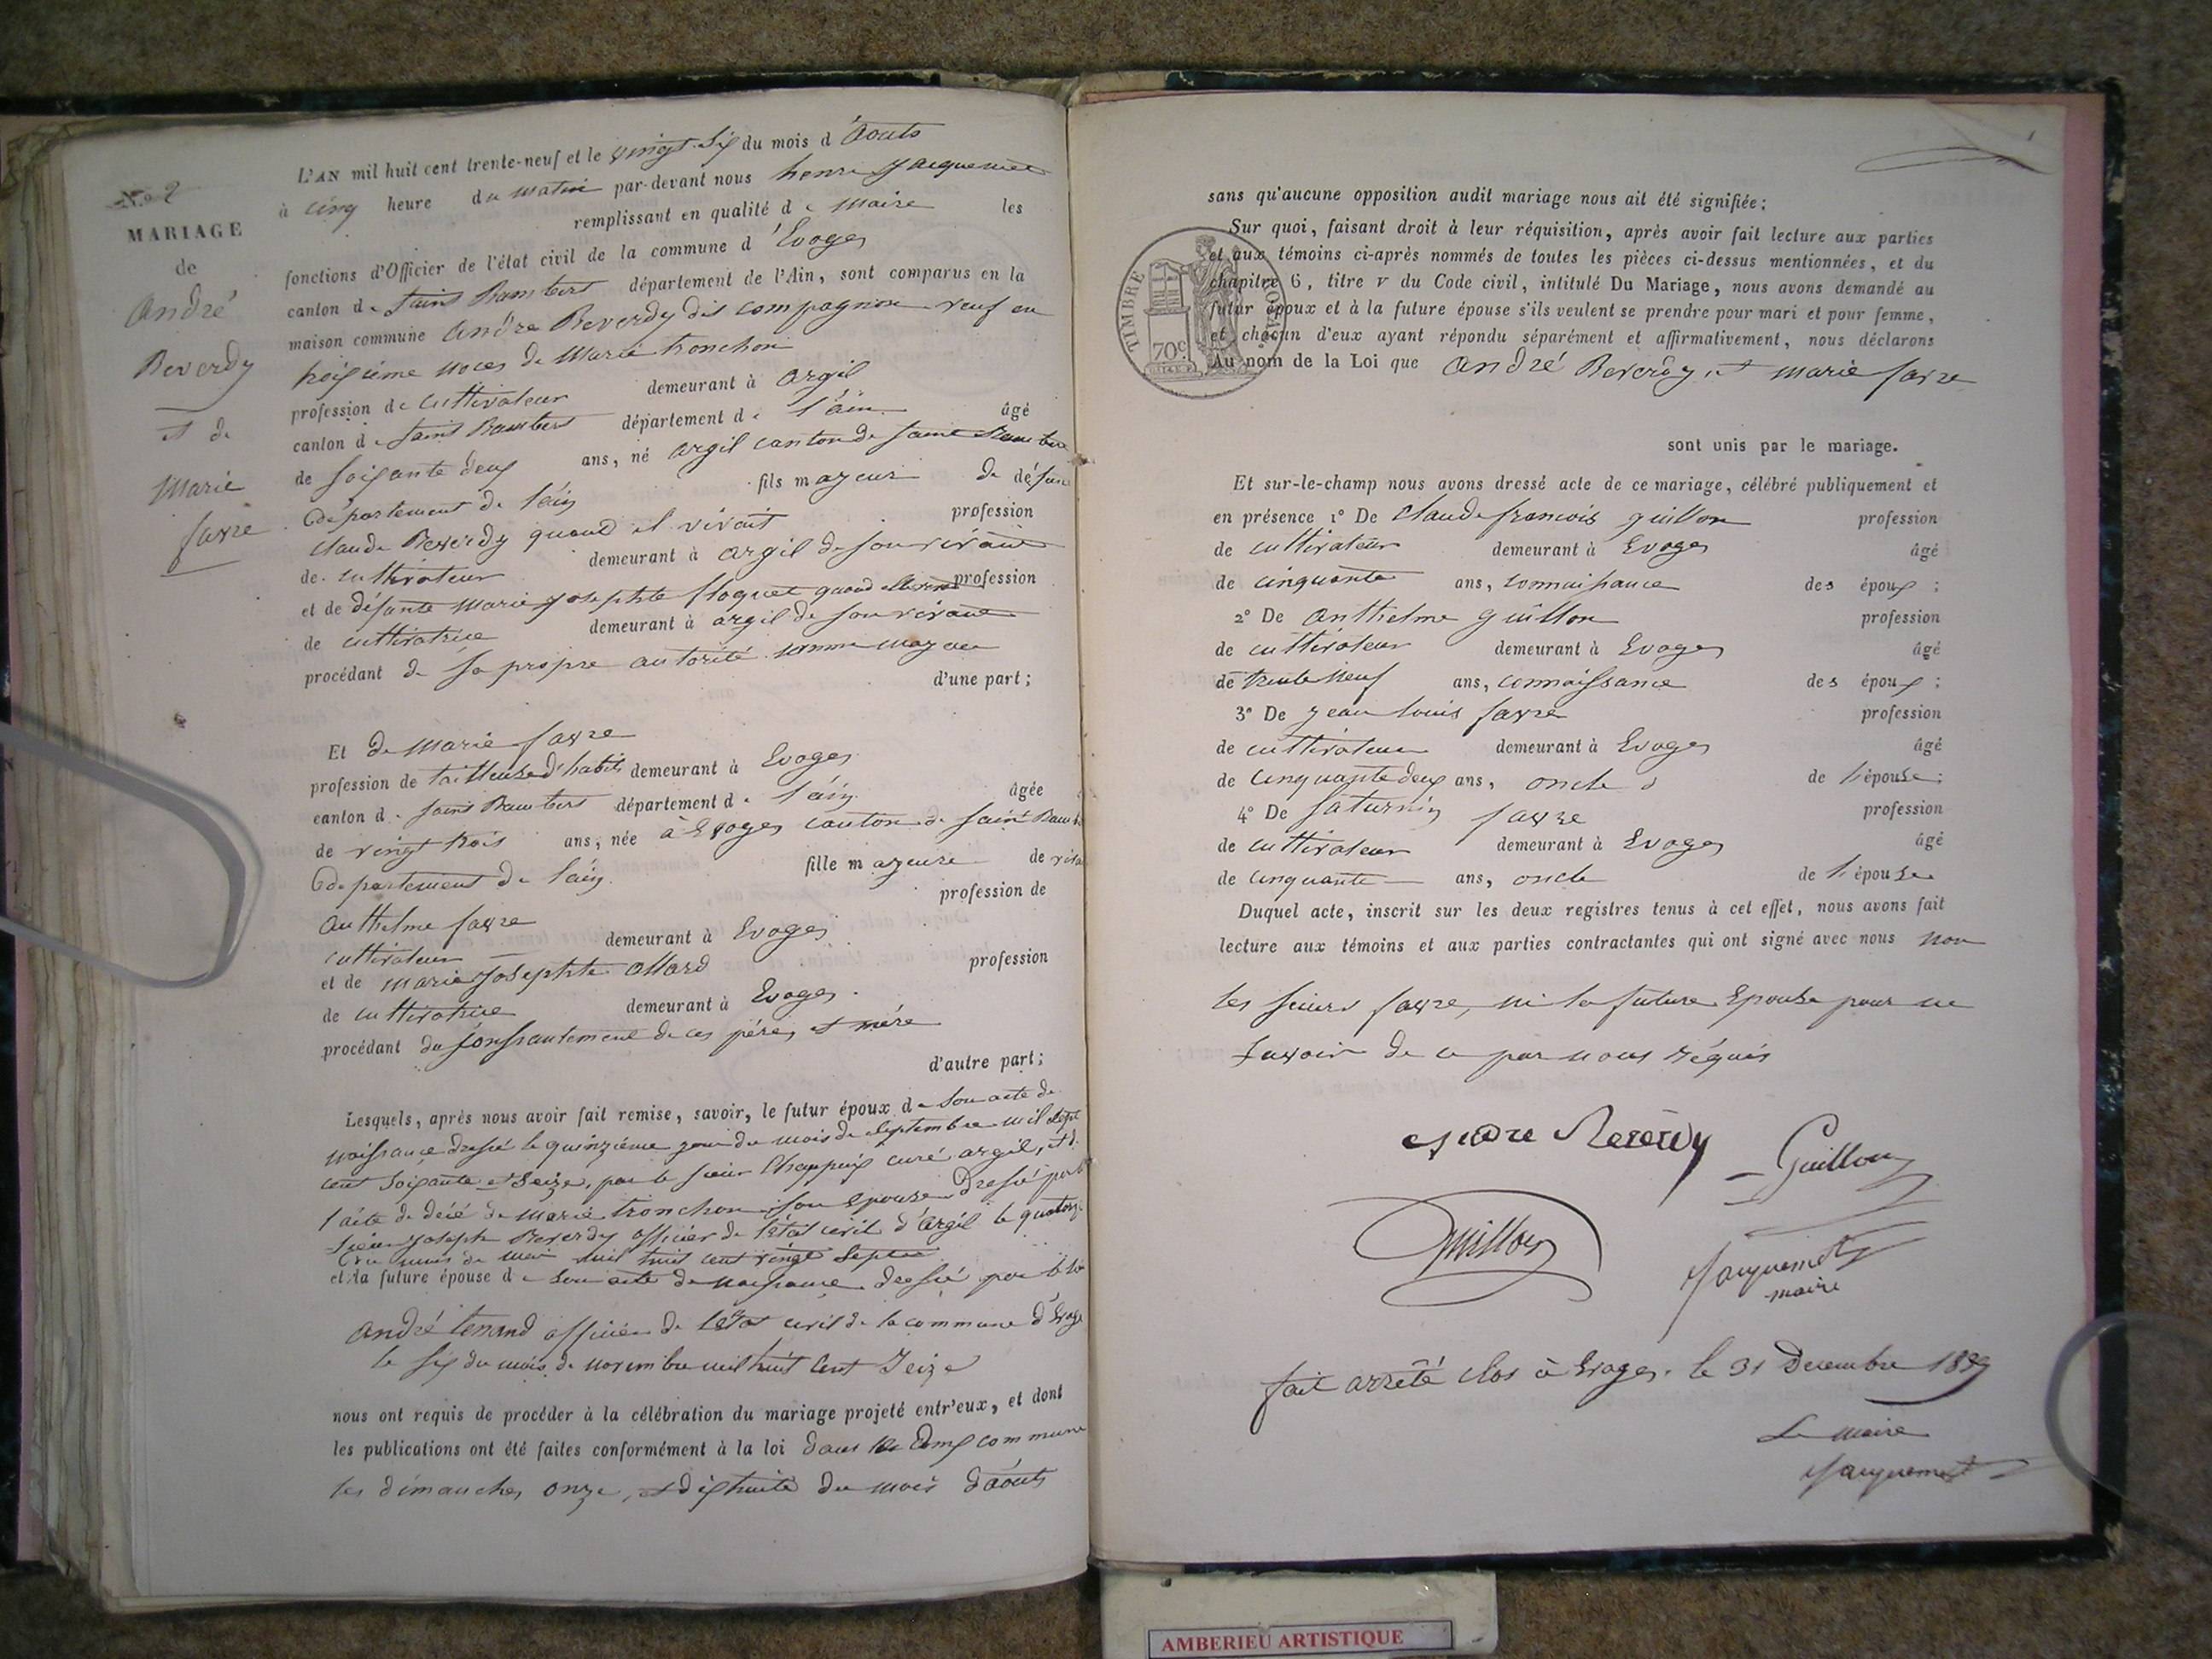 N.o 2
MARIAGE
de
André
Reverdy
et de
Marie
favre
L'AN mil huit cent trente-neuf et le vingt six du mois d'Aouts
à cinq heure du matin par-devant nous henri Jacquemet
remplissant en qualité de Maire les
fonctions d'Officier de l'état civil de la commune d'Evoges
canton de Saint Rambert département de l'Ain, sont comparus en la
maison commune André Reverdy dit compagnon veuf en
troisième noces de Marie tronchon
profession de cultivateur demeurant à argil
canton de Saint Rambert département de l'ain âgé
de soixante deux ans, né argil canton de saint Rambert
département de l'ain fils mayeur de défunt
Claude Reverdy quand il vivait profession
de cultivateur demeurant à argil de son vivant
et de défunte Marie Josephte floquet quand elle vivait profession
de cultivatrice demeurant à argil de son vivant
procédant de sa propre autorité comme mayeur
d'une part ;
Et de Marie favre
profession de tailleuse d'habits demeurant à Evoges
canton de Saint Rambert département de l'ain âgée
de vingt trois ans, née à Evoges canton de saint Ramb
département de l'ain fille mayeure de viva
anthelme favre profession de
cultivateur demeurant à Evoges
et de marie Josephte allard profession
de cultivatrice demeurant à Evoges
procédant du Conssantement de ces père et mère
d'autre part ;
Lesquels, après nous avoir fait remise, savoir, le futur époux de son acte de
naissance dressé le quinzième jour du mois de septembre mil sept
cent soixante et seize, par le sieur Chappuix curé argil, et d
l'acte de décé de Marie tronchon son epouse dressé par l
sieur Joseph Reverdy officier de l'état civil d'argil le quatorze
du mois de mai mil huit cent vingt sept
et la future épouse de son acte de naissance dressé par le
André tenand officier de l'état civil de la commune d'Evoge
le six du mois de novembre mil huit cent seize
nous ont requis de procéder à la célébration du mariage projeté entr'eux, et dont
les publications ont été faites conformément à la loi dans les deux commune
les dimanches onze, et dixhuite du mois d'aouts
sans qu'aucune opposition audit mariage nous ait été signifiée ;
Sur quoi, faisant droit à leur réquisition, après avoir fait lecture aux parties
et aux témoins ci-après nommés de toutes les pièces ci-dessus mentionnées, et du
chapitre 6, titre v du Code civil, intitulé Du Mariage, nous avons demandé au
futur époux et à la future épouse s'ils veulent se prendre pour mari et pour femme,
et chacun d'eux ayant répondu séparément et affirmativement, nous déclarons
Au nom de la Loi que André Reverdy et marie favre
TIMBRE ROYAL
70c
sont unis par le mariage.
Et sur-le-champ nous avons dressé acte de ce mariage, célébré publiquement et
en présence 1° De Claude francois guillon profession
de cultivateur demeurant à Evoges âgé
de cinquante ans, connaissance des époux ;
2° De Anthelme guillon profession
de cultivateur demeurant à Evoges âgé
de trente neuf ans, connaissance des époux ;
3° De Jean louis favre profession
de cultivateur demeurant à Evoges âgé
de cinquante deux ans, oncle de l'épouse ;
4° De Saturnin favre profession
de cultivateur demeurant à Evoges âgé
de cinquante ans, oncle de l'épouse
Duquel acte, inscrit sur les deux registres tenus à cet effet, nous avons fait
lecture aux témoins et aux parties contractantes qui ont signé avec nous non
les sieurs favre, ni la future Epouse pour ne
savoir de ce par nous réquis
andre Reverdy
Guillon
Guillon
Jacquemet
maire
fait arrêté clos à Evoges le 31 Decembre 1839
Le maire
Jacquemet
AMBERIEU ARTISTIQUE